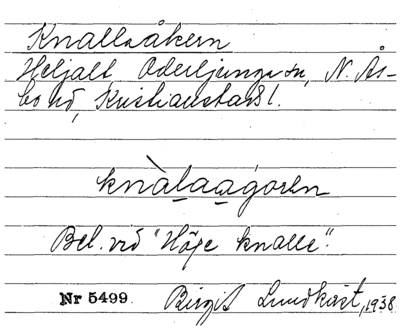 Knallaåkern
Heljalt Oderljunga sn, N. Ås-
bo hd, Kristianstads l.
knàlaagorln
Bel. vid "Höge knalle".
Nr 5499 Birgit Lundkvist, 1938